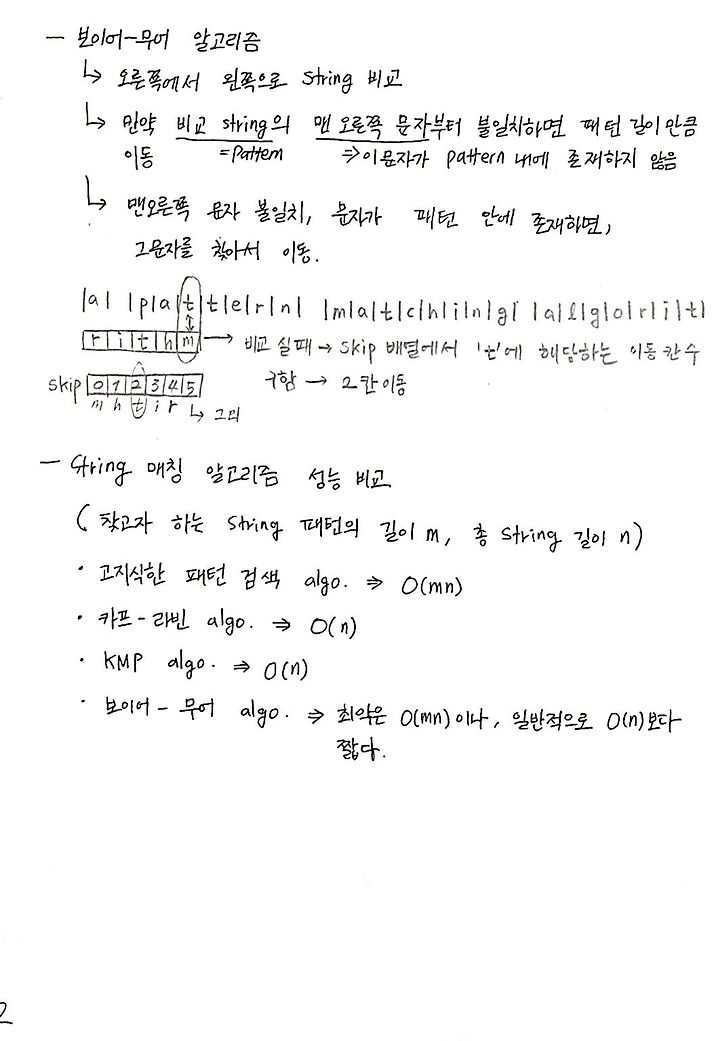 – 보이어-무어 알고리즘
↳ 오른쪽에서 왼쪽으로 string 비교
↳ 만약 비교 string의 맨 오른쪽 문자부터 불일치하면 패턴 길이만큼
이동 =pattern ⇒이문자가 pattern 내에 존재하지 않음
↳ 맨오른쪽 문자 불일치, 문자가 패턴 안에 존재하면,
그문자를 찾아서 이동.
|a| |p|a|t|t|e|r|n| |m|a|t|c|h|i|n|g| |a|l|g|o|r|i|t|
|r|i|t|h|m| → 비교 실패 → skip 배열에서 't'에 해당하는 이동 칸 수
skip |0|1|2|3|4|5| 구함 → 2칸이동
m h t i r ↳ 그외
– String 매칭 알고리즘 성능 비교
( 찾고자 하는 string 패턴의 길이 m, 총 string 길이 n)
· 고지식한 패턴 검색 algo. ⇒ O(mn)
· 카프-라빈 algo. ⇒ O(n)
· KMP algo. ⇒ O(n)
· 보이어-무어 algo. ⇒ 최악은 O(mn)이나, 일반적으로 O(n)보다
짧다.
2